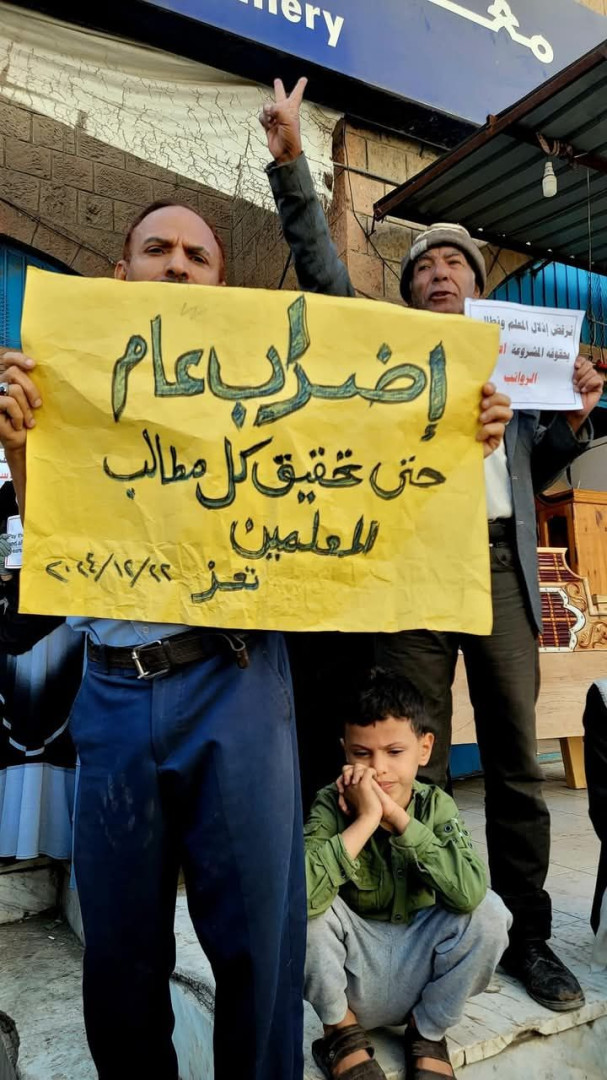 nery
معـ
إضراب عام
حتى تحقيق كل مطالب
المعلمين
تعز
٢٠٢٤/١٢/٢٢
نرفض إذلال المعلم ونطالب
بحقوقه المشروعة
الرواتب